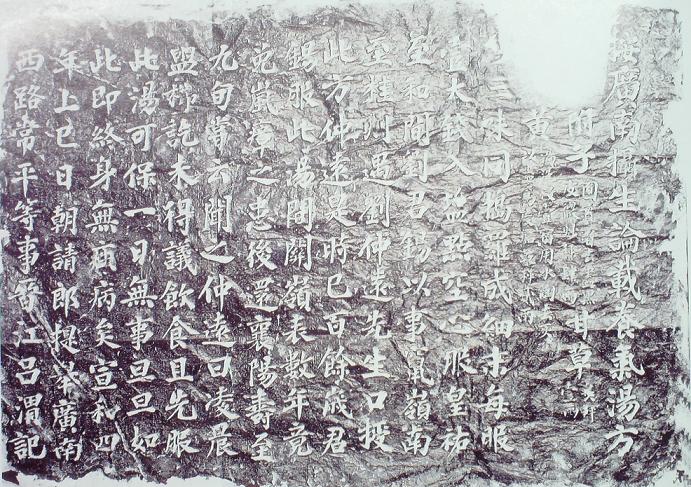 廣南攝生論載養氣湯方
附子 甘草
黃
三味同搗羅成細末每服
大錢入鹽點空心服皇祐
至和間劉君錫以事竄嶺南
至桂州遇劉仲遠先生口授
此方仲遠是時已百餘歲君
錫服此湯間關嶺表數年竟
免嵐瘴之患後還襄陽壽至
九旬嘗云聞之仲遠曰凌晨
盥櫛訖未得議飲食且先服
此湯可保一日無事旦旦如
此即終身無疾病矣宣和四
年上巳日朝請郎提舉廣南
西路常平等事晉江呂渭記